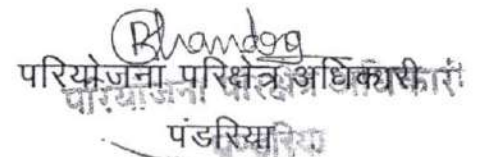 परियोजना परिक्षेत्र अधिकारी
परियोजना परिक्षेत्र अधिकारी
पंडरिया
पण्डरिया